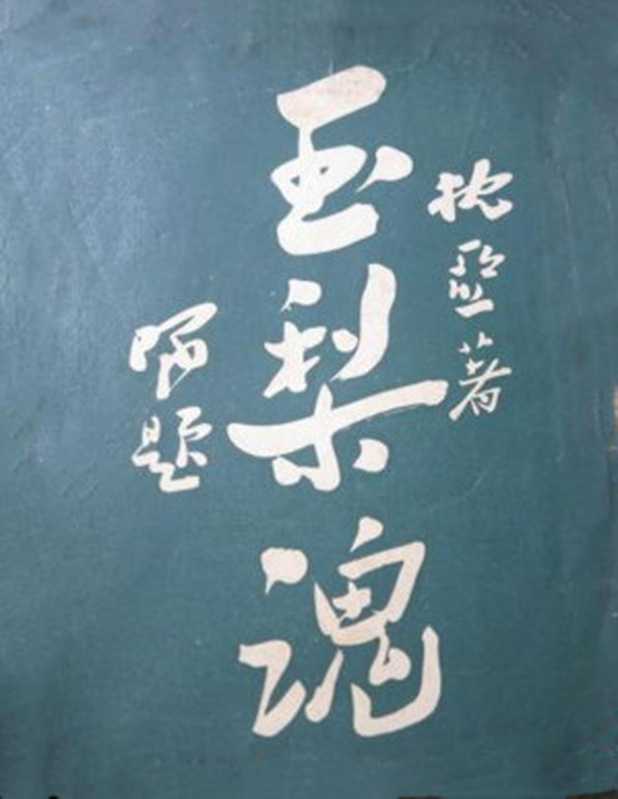 枕亞著
玉梨魂
題